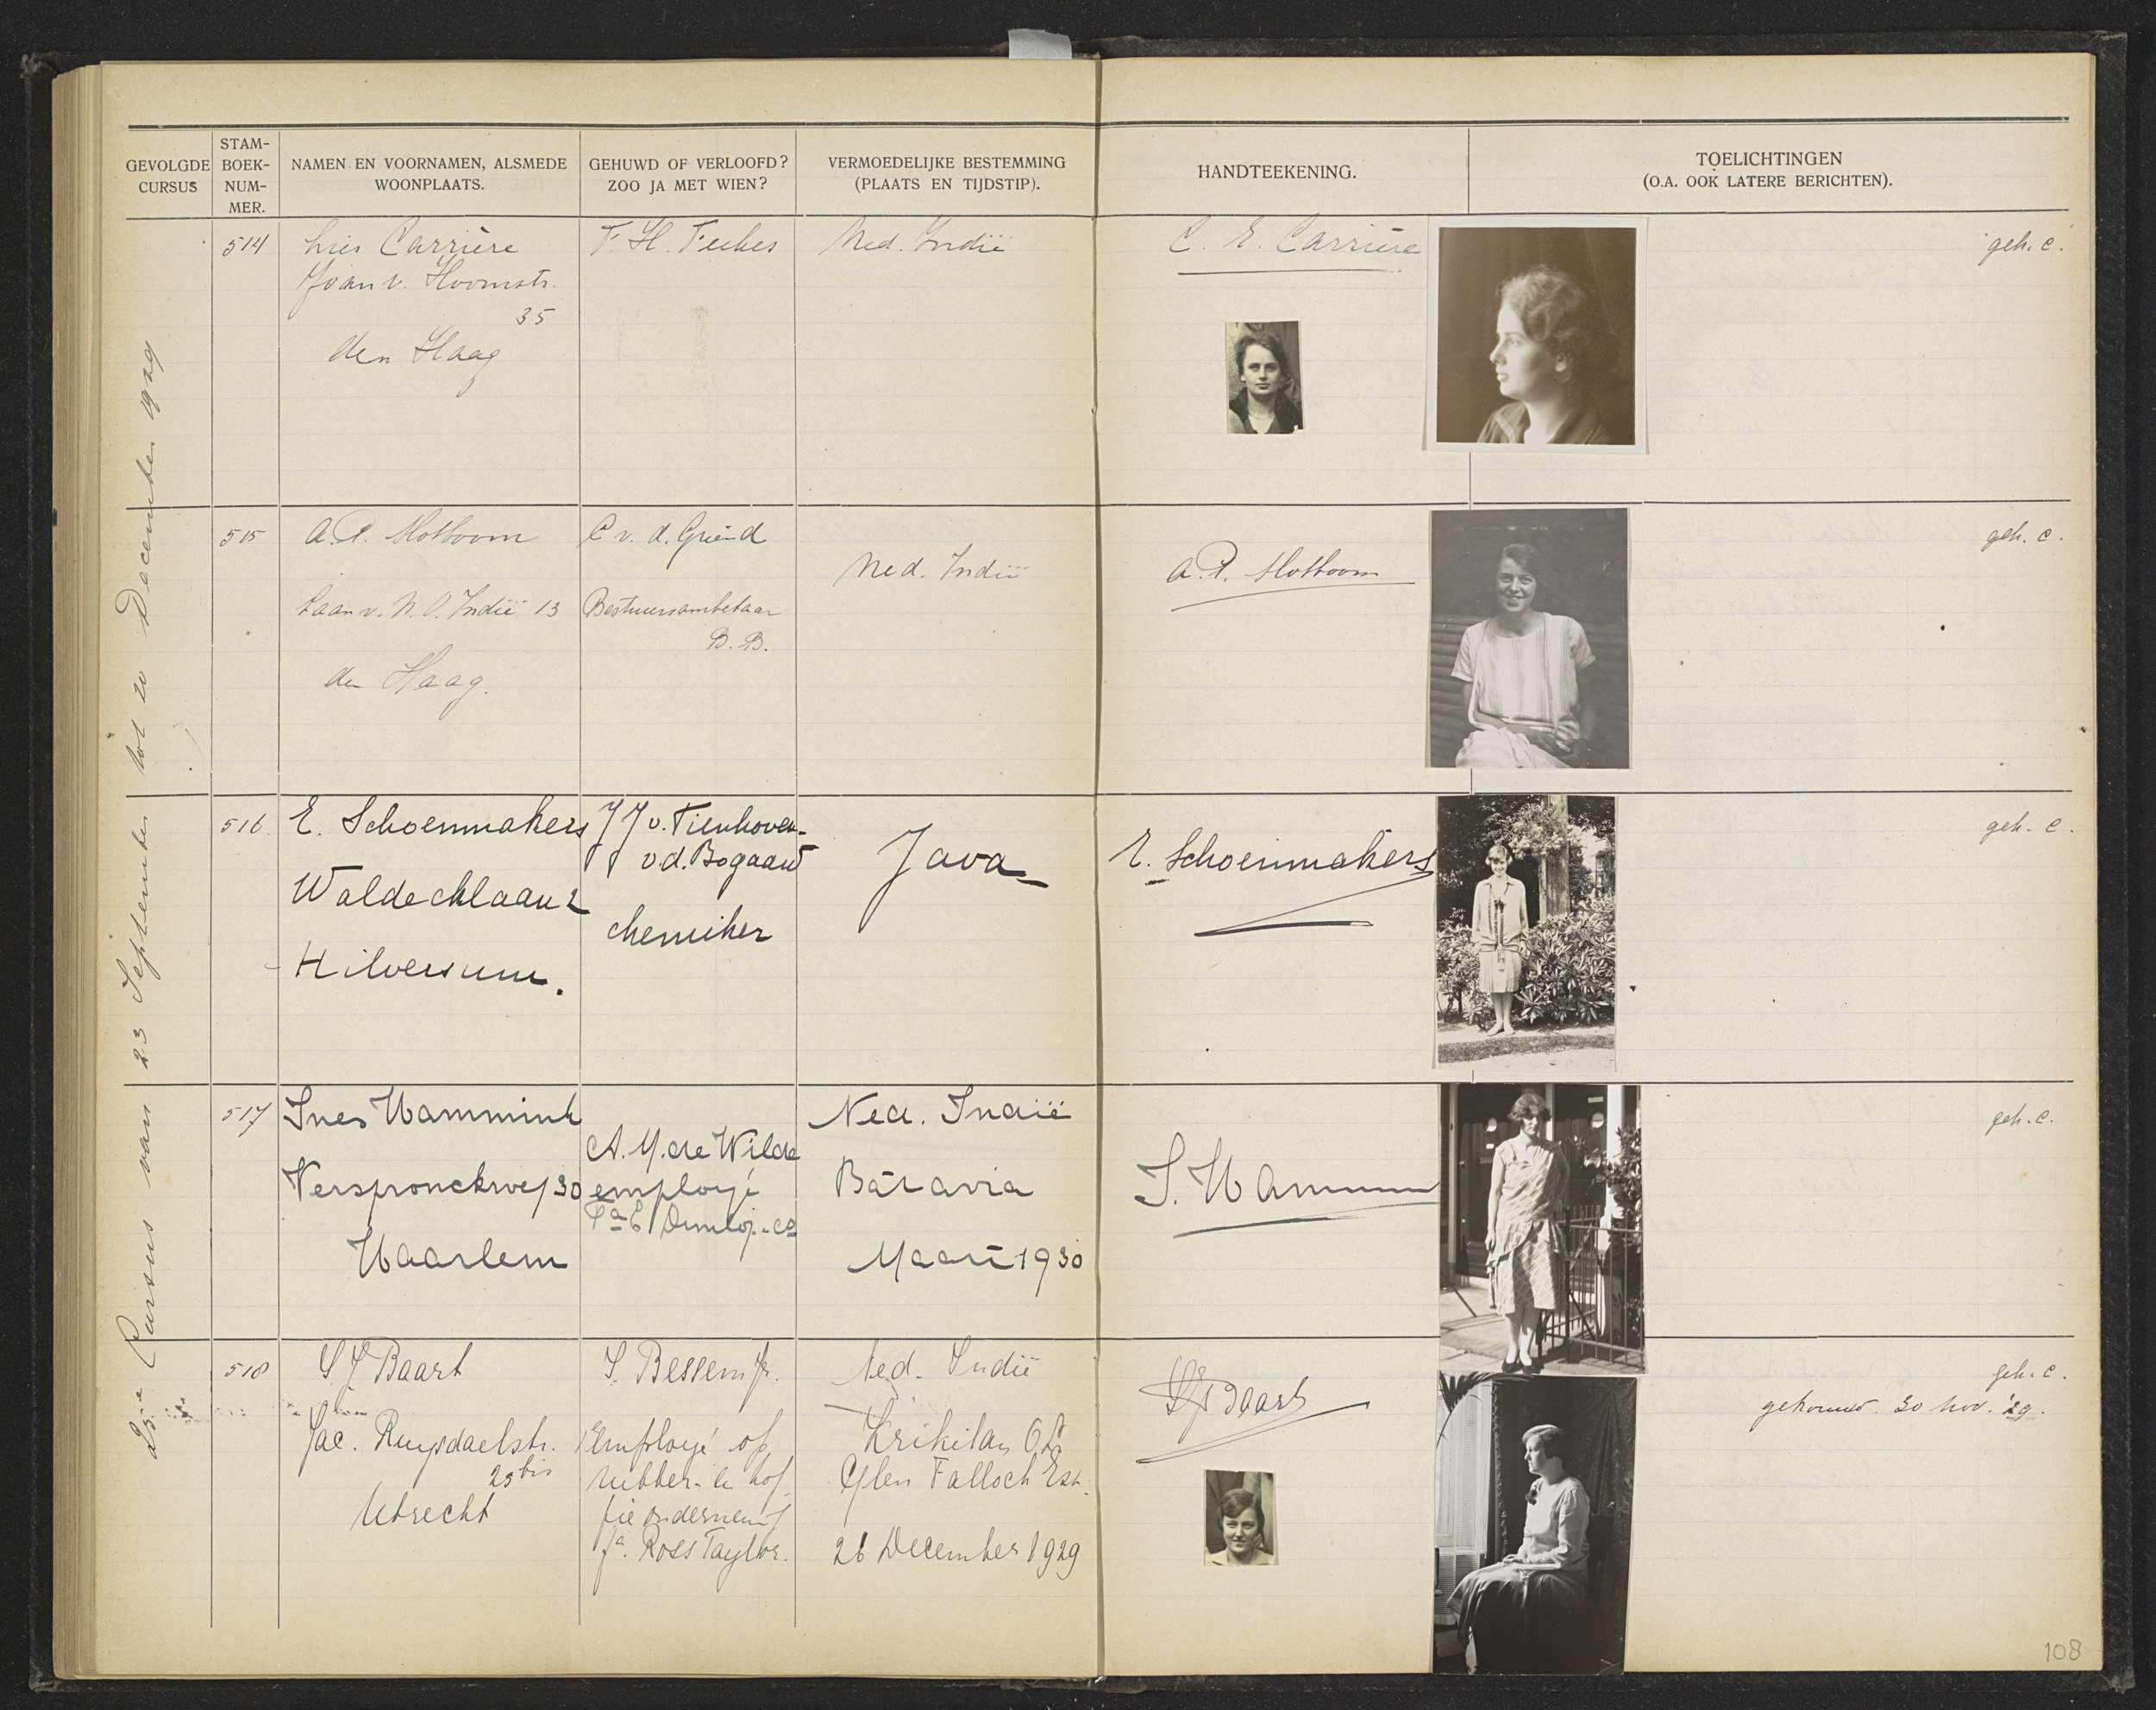 GEVOLGDE CURSUS
STAM-BOEK-NUM-MER.
NAMEN EN VOORNAMEN, ALSMEDE WOONPLAATS.
GEHUWD OF VERLOOFD? ZOO JA MET WIEN?
VERMOEDELIJKE BESTEMMING (PLAATS EN TIJDSTIP).
HANDTEEKENING.
TOELICHTINGEN (O.A. OOK LATERE BERICHTEN).
Cursus van 23 September tot 20 December 1929
514
Lies Carrière
Joan v. Hoornstr.
35
den Haag
F. H.
Ned. Indië
C. E. Carrière
geh. c.
515
A. P. Holboom
Laan v. N. O. Indië 13
den Haag.
C v. d. Griend
Bestuursambtenaar
B. B.
Ned. Indië
A. P. Holboom
geh. c.
516
E. Schoenmakers
Waldecklaan 2
Hilversum.
J J v. Tienhoven-
v.d. Bogaard
chemiker
Java
E. Schoenmakers
geh. c.
517
Ines Hammink
Verspronckweg 30
Haarlem
A. M. de Wilde
employé
Fa E Dunlop & Co
Ned. Indië
Batavia
Maart 1930
I. Hammink
geh. c.
518
S J Baart
Jac. Ruysdaelstr.
25 bis
Utrecht
S. Bessem Jr.
Employé op
rubber- en kof-
fie ondernem
fa. Ross Taylor.
Ned. Indië
Krikilan
Glen Falloch Est.
26 December 1929
S J Baart
geh. c.
getrouwd 30 Nov. '29.
108